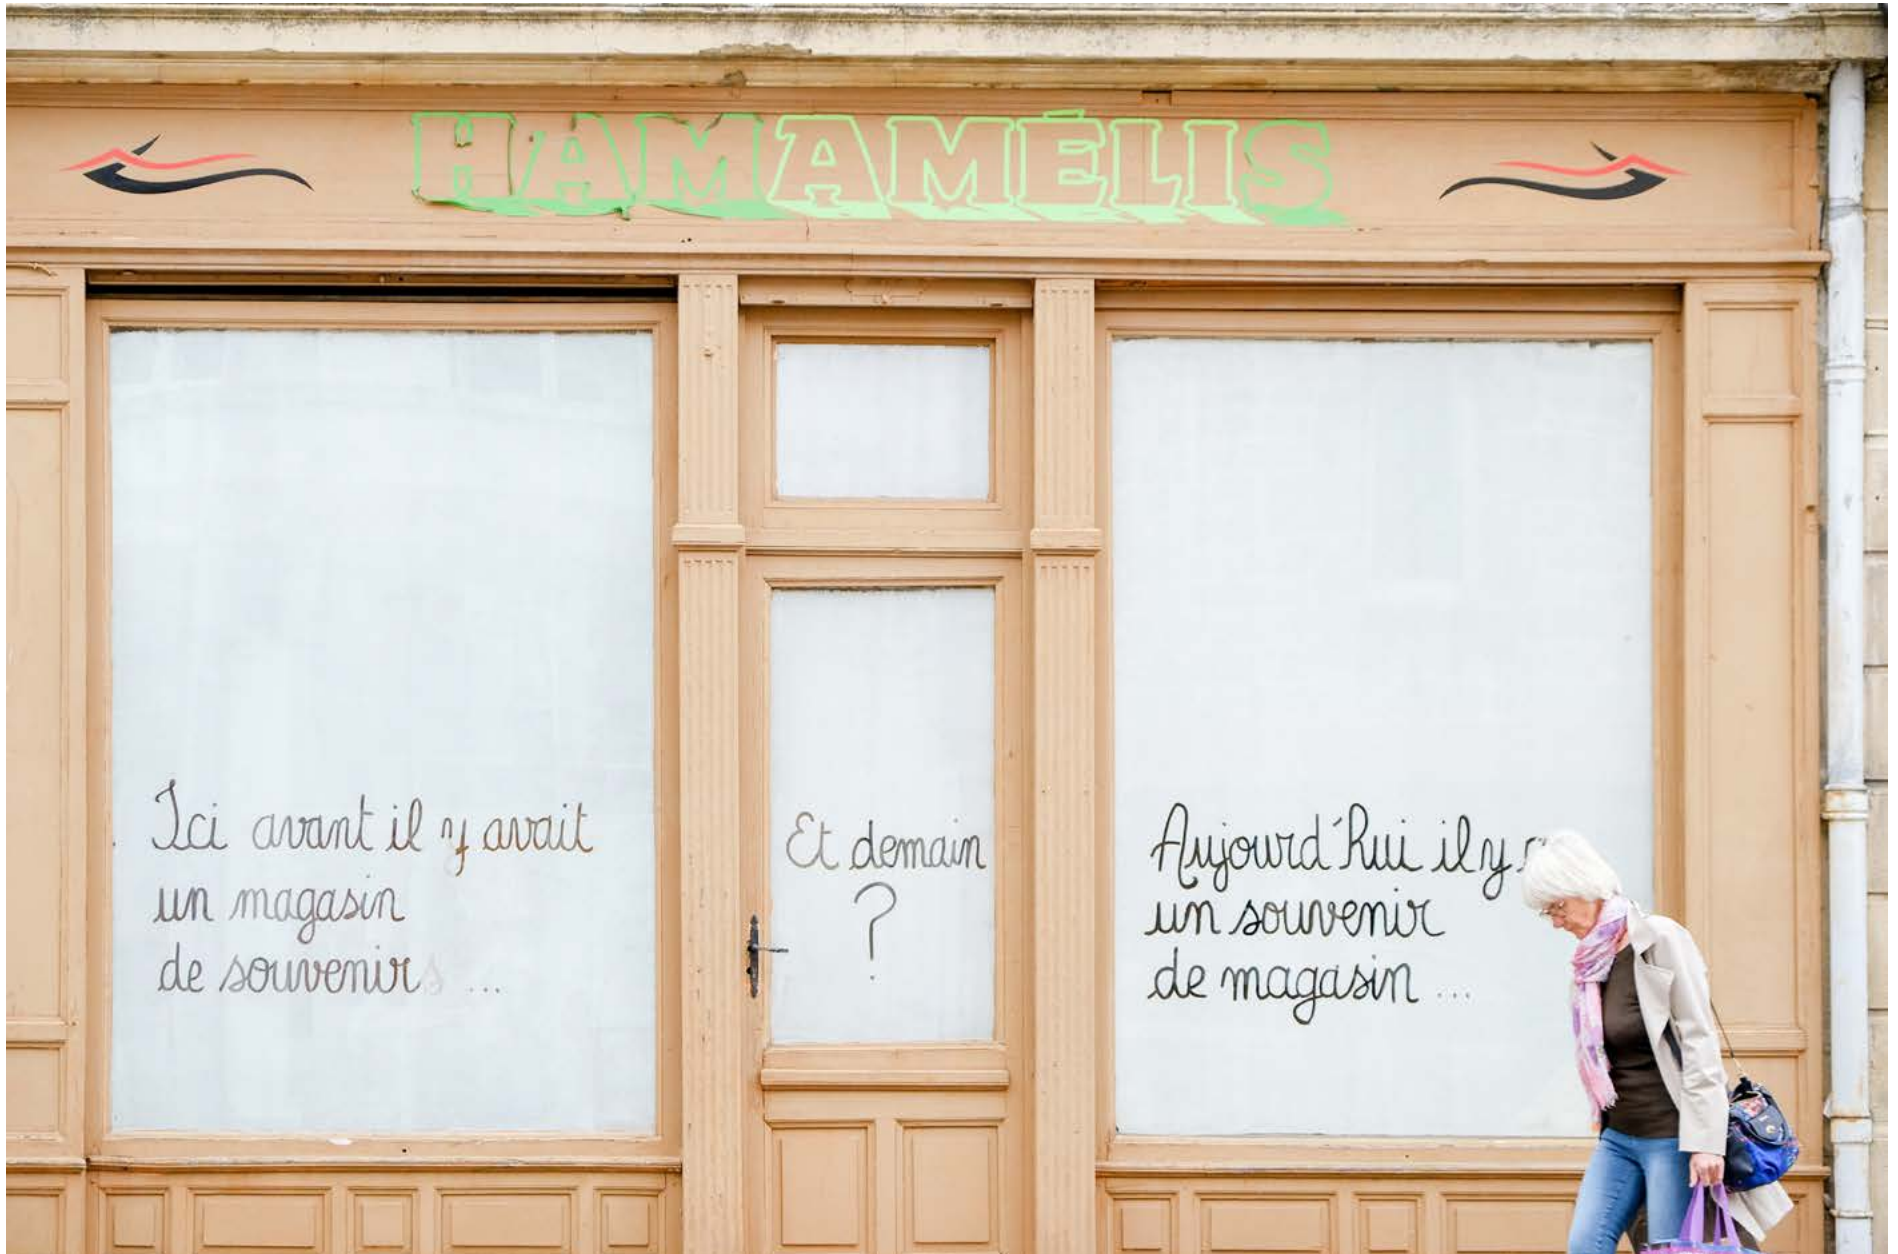 HAMAMÉLIS
Ici avant il y avait
un magasin
de souvenirs ...
Et demain
?
Aujourd'hui il y
un souvenir
de magasin ...